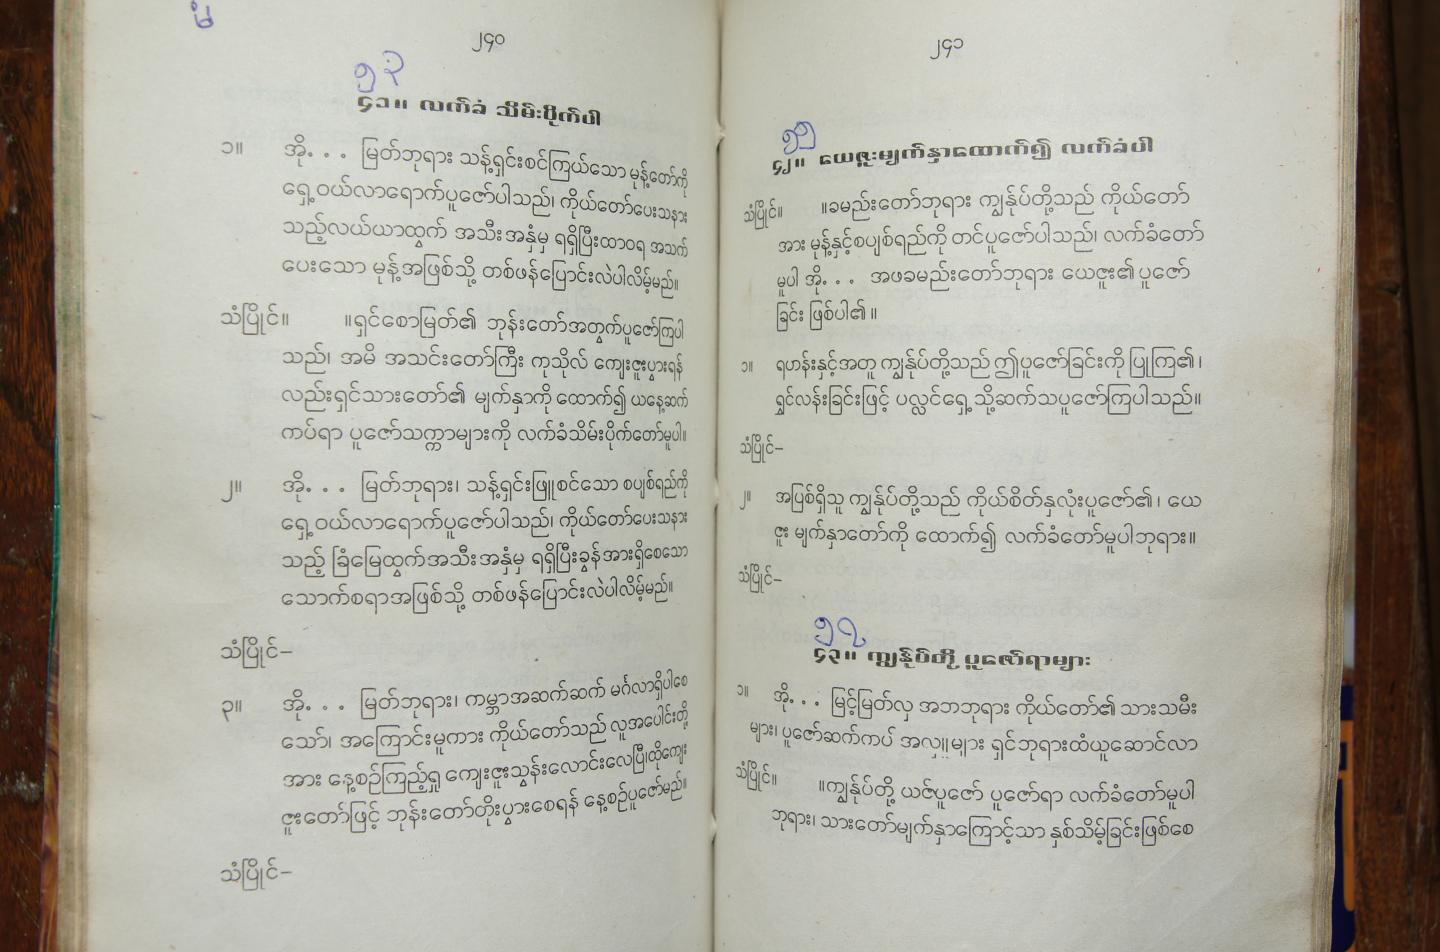 ၂၄၀
၅၃
၄၁။ လက်ခံ သိမ်းပိုက်ပါ
၁။ အို. . . မြတ်ဘုရား သန့်ရှင်းစင်ကြယ်သော မုန့်တော်ကို
ရှေ့ဝယ်လာရောက်ပူဇော်ပါသည်၊ ကိုယ်တော်ပေးသနား
သည့်လယ်ယာထွက် အသီးအနှံမှ ရရှိပြီးထာဝရ အသက်
ပေးသော မုန့်အဖြစ်သို့ တစ်ဖန်ပြောင်းလဲပါလိမ့်မည်။
သံပြိုင်။ ။ရှင်စောမြတ်၏ ဘုန်းတော်အတွက်ပူဇော်ကြပါ
သည်၊ အမိ အသင်းတော်ကြီး ကုသိုလ် ကျေးဇူးပွားရန်
လည်းရှင်သားတော်၏ မျက်နှာကို ထောက်၍ ယနေ့ဆက်
ကပ်ရာ ပူဇော်သက္ကာများကို လက်ခံသိမ်းပိုက်တော်မူပါ။
၂။ အို. . . မြတ်ဘုရား၊ သန့်ရှင်းဖြူစင်သော စပျစ်ရည်ကို
ရှေ့ဝယ်လာရောက်ပူဇော်ပါသည်၊ ကိုယ်တော်ပေးသနား
သည့် ခြံမြေထွက်အသီးအနှံမှ ရရှိပြီးခွန်အားရှိစေသော
သောက်စရာအဖြစ်သို့ တစ်ဖန်ပြောင်းလဲပါလိမ့်မည်။
သံပြိုင်–
၃။ အို. . . မြတ်ဘုရား၊ ကမ္ဘာအဆက်ဆက် မင်္ဂလာရှိပါစေ
သော်၊ အကြောင်းမူကား ကိုယ်တော်သည် လူအပေါင်းတို့
အား နေ့စဉ်ကြည့်ရှု ကျေးဇူးသွန်းလောင်းလေပြီ၊ထိုကျေး
ဇူးတော်ဖြင့် ဘုန်းတော်တိုးပွားစေရန် နေ့စဉ်ပူဇော်မည်။
သံပြိုင်–
၂၄၁
၄၂။ ယေဇူးမျက်နှာထောက်၍ လက်ခံပါ
သံပြိုင်။ ။ခမည်းတော်ဘုရား ကျွန်ုပ်တို့သည် ကိုယ်တော်
အား မုန့်နှင့်စပျစ်ရည်ကို တင်ပူဇော်ပါသည်၊ လက်ခံတော်
မူပါ အို. . . အဖခမည်းတော်ဘုရား ယေဇူး၏ ပူဇော်
ခြင်း ဖြစ်ပါ၏ ။
၁။ ရဟန်းနှင့်အတူ ကျွန်ုပ်တို့သည် ဤပူဇော်ခြင်းကို ပြုကြ၏ ၊
ရွှင်လန်းခြင်းဖြင့် ပလ္လင်ရှေ့ သို့ဆက်သပူဇော်ကြပါသည်။
သံပြိုင်–
၂။ အပြစ်ရှိသူ ကျွန်ုပ်တို့သည် ကိုယ်စိတ်နှလုံးပူဇော်၏ ၊ ယေ
ဇူး မျက်နှာတော်ကို ထောက်၍ လက်ခံတော်မူပါဘုရား။
သံပြိုင်–
၄၃။ ကျွန်ုပ်တို့ ပူဇော်ရာများ
၁။ အို. . . မြင့်မြတ်လှ အဘဘုရား ကိုယ်တော်၏ သားသမီး
များ၊ ပူဇော်ဆက်ကပ် အလှူများ ရှင်ဘုရားထံယူဆောင်လာ
သံပြိုင်။ ။ကျွန်ုပ်တို့ ယဇ်ပူဇော် ပူဇော်ရာ လက်ခံတော်မူပါ
ဘုရား၊ သားတော်မျက်နှာကြောင့်သာ နှစ်သိမ့်ခြင်းဖြစ်စေ